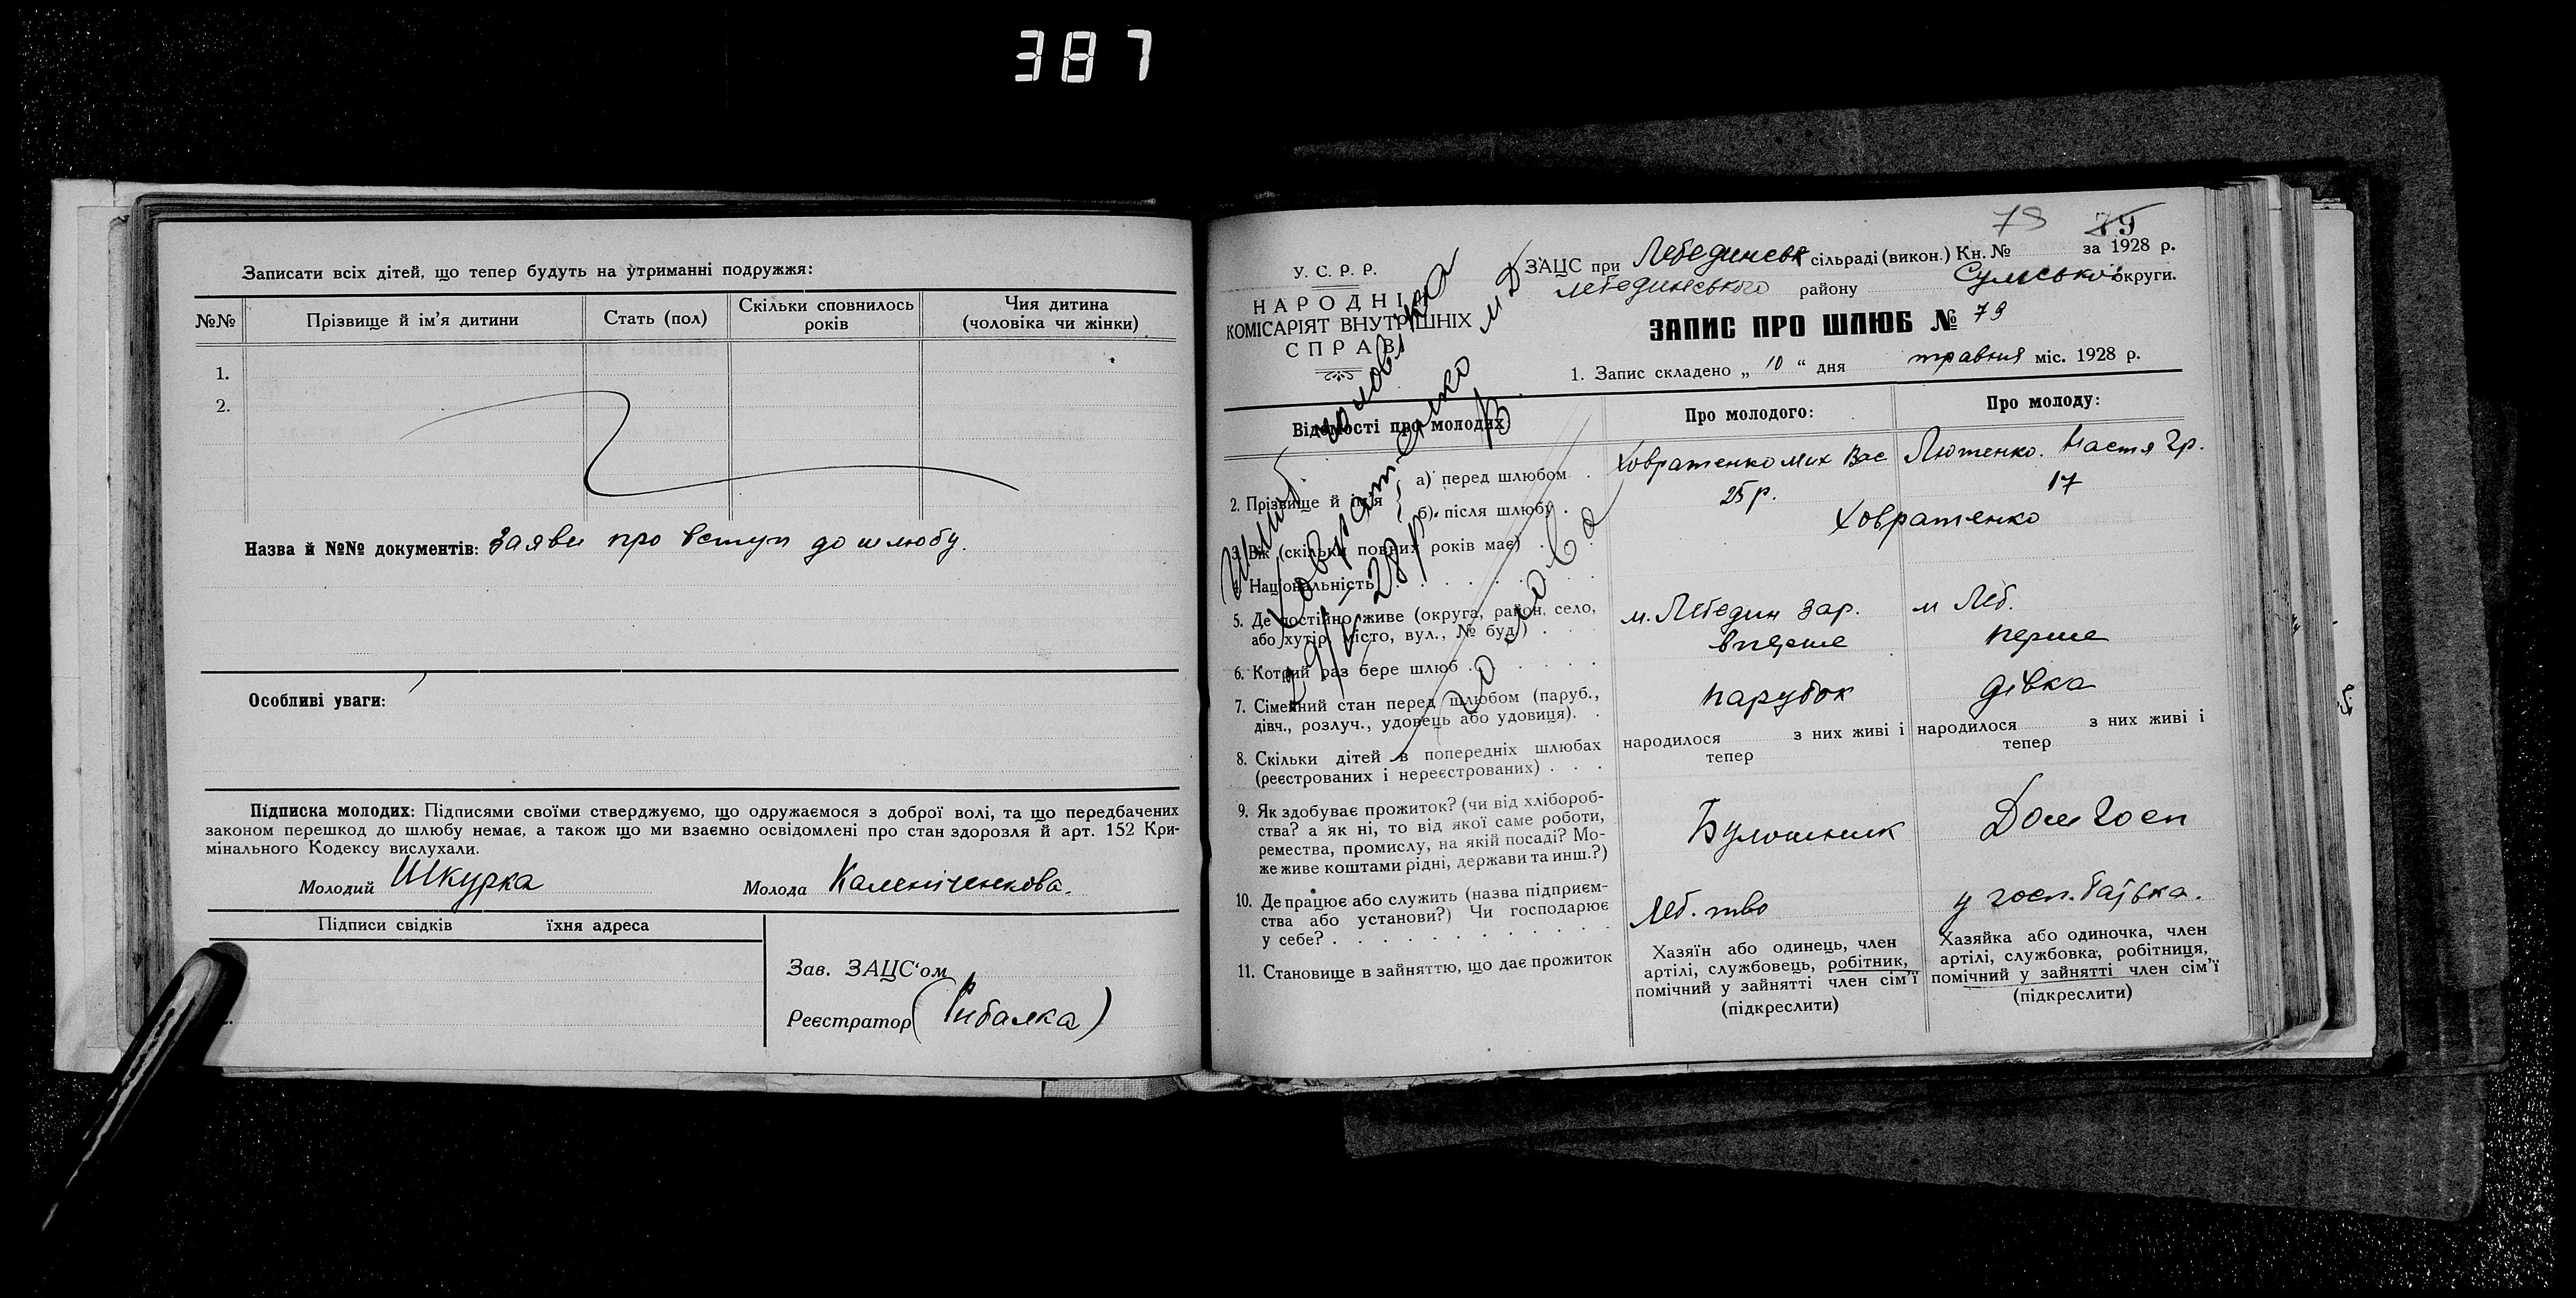 387
Записати всіх дітей, що тепер будуть на утриманні подружжя:
№№ Прізвище й ім’я дитини Стать (пол) Скільки сповнилось років Чия дитина (чоловіка чи жінки)
1.
2.
Назва й №№ документів: Заяви про вступ до шлюбу.
Особливі уваги:
Підписка молодих: Підписями своїми стверджуємо, що одружаємося з доброї волі, та що передбачених
законом перешкод до шлюбу немає, а також що ми взаємно освідомлені про стан здоровля й арт. 152 Кри-
мінального Кодексу вислухали.
Молодий Шкурка Молода Каленіченкова.
Підписи свідків їхня адреса
Зав. ЗАЦС‘ом
Реєстратор (Рибалка)
78 79
У. С. Р. Р.
НАРОДНІЙ
КОМІСАРІЯТ ВНУТРІШНІХ
СПРАВ
ЗАЦС при Лебединськ сільраді (викон.) Кн. № за 1928 р.
Лебединського району Сумської округи.
ЗАПИС ПРО ШЛЮБ № 79
1. Запис складено „ 10 “ дня травня міс. 1928 р.
Відомості про молодих: Про молодого: Про молоду:
2. Прізвище й ім’я
а) перед шлюбом Ховратенко Мих Вас Лютенко. Настя Гр.
25 р. 17
б) після шлюбу Ховратенко
3. Вік (скільки повних років має)
4. Національність
5. Де постійно живе (округа, район, село,
або хутір, місто, вул., № буд.) м. Лебедин зар. м Леб.
6. Котрий раз бере шлюб вперше перше
7. Сімейний стан перед шлюбом (паруб.,
дівч., розлуч., удовець або удовиця). парубок дівка
8. Скільки дітей в попередніх шлюбах
(реєстрованих і нереєстрованих)
народилося з них живі і тепер
народилося з них живі і тепер
9. Як здобуває прожиток? (чи від хлібороб-
ства? а як ні, то від якої саме роботи,
ремества, промислу, на якій посаді? Мо-
же живе коштами рідні, держави та инш.?)
Булошник Дом Госп
10. Де працює або служить (назва підприєм-
ства або установи?) Чи господарює
у себе?
Леб. тво у госп. батька.
11. Становище в зайняттю, що дає прожиток
Хазяїн або одинець, член
артілі, службовець, робітник,
помічний у зайнятті член сім’ї
(підкреслити)
Хазяйка або одиночка, член
артілі, службовка, робітниця,
помічний у зайнятті член сім’ї
(підкреслити)